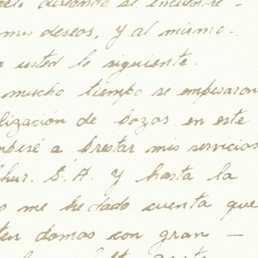 deseando se encuentre -
mis deseos, y al mismo-
a usted lo siguiente.
mucho tiempo se empesaron
lización de pozos en este
mpesé a prestar mis servicios
hur. S.A. y hasta la
o me he dado cuenta que
ten domos con gran -